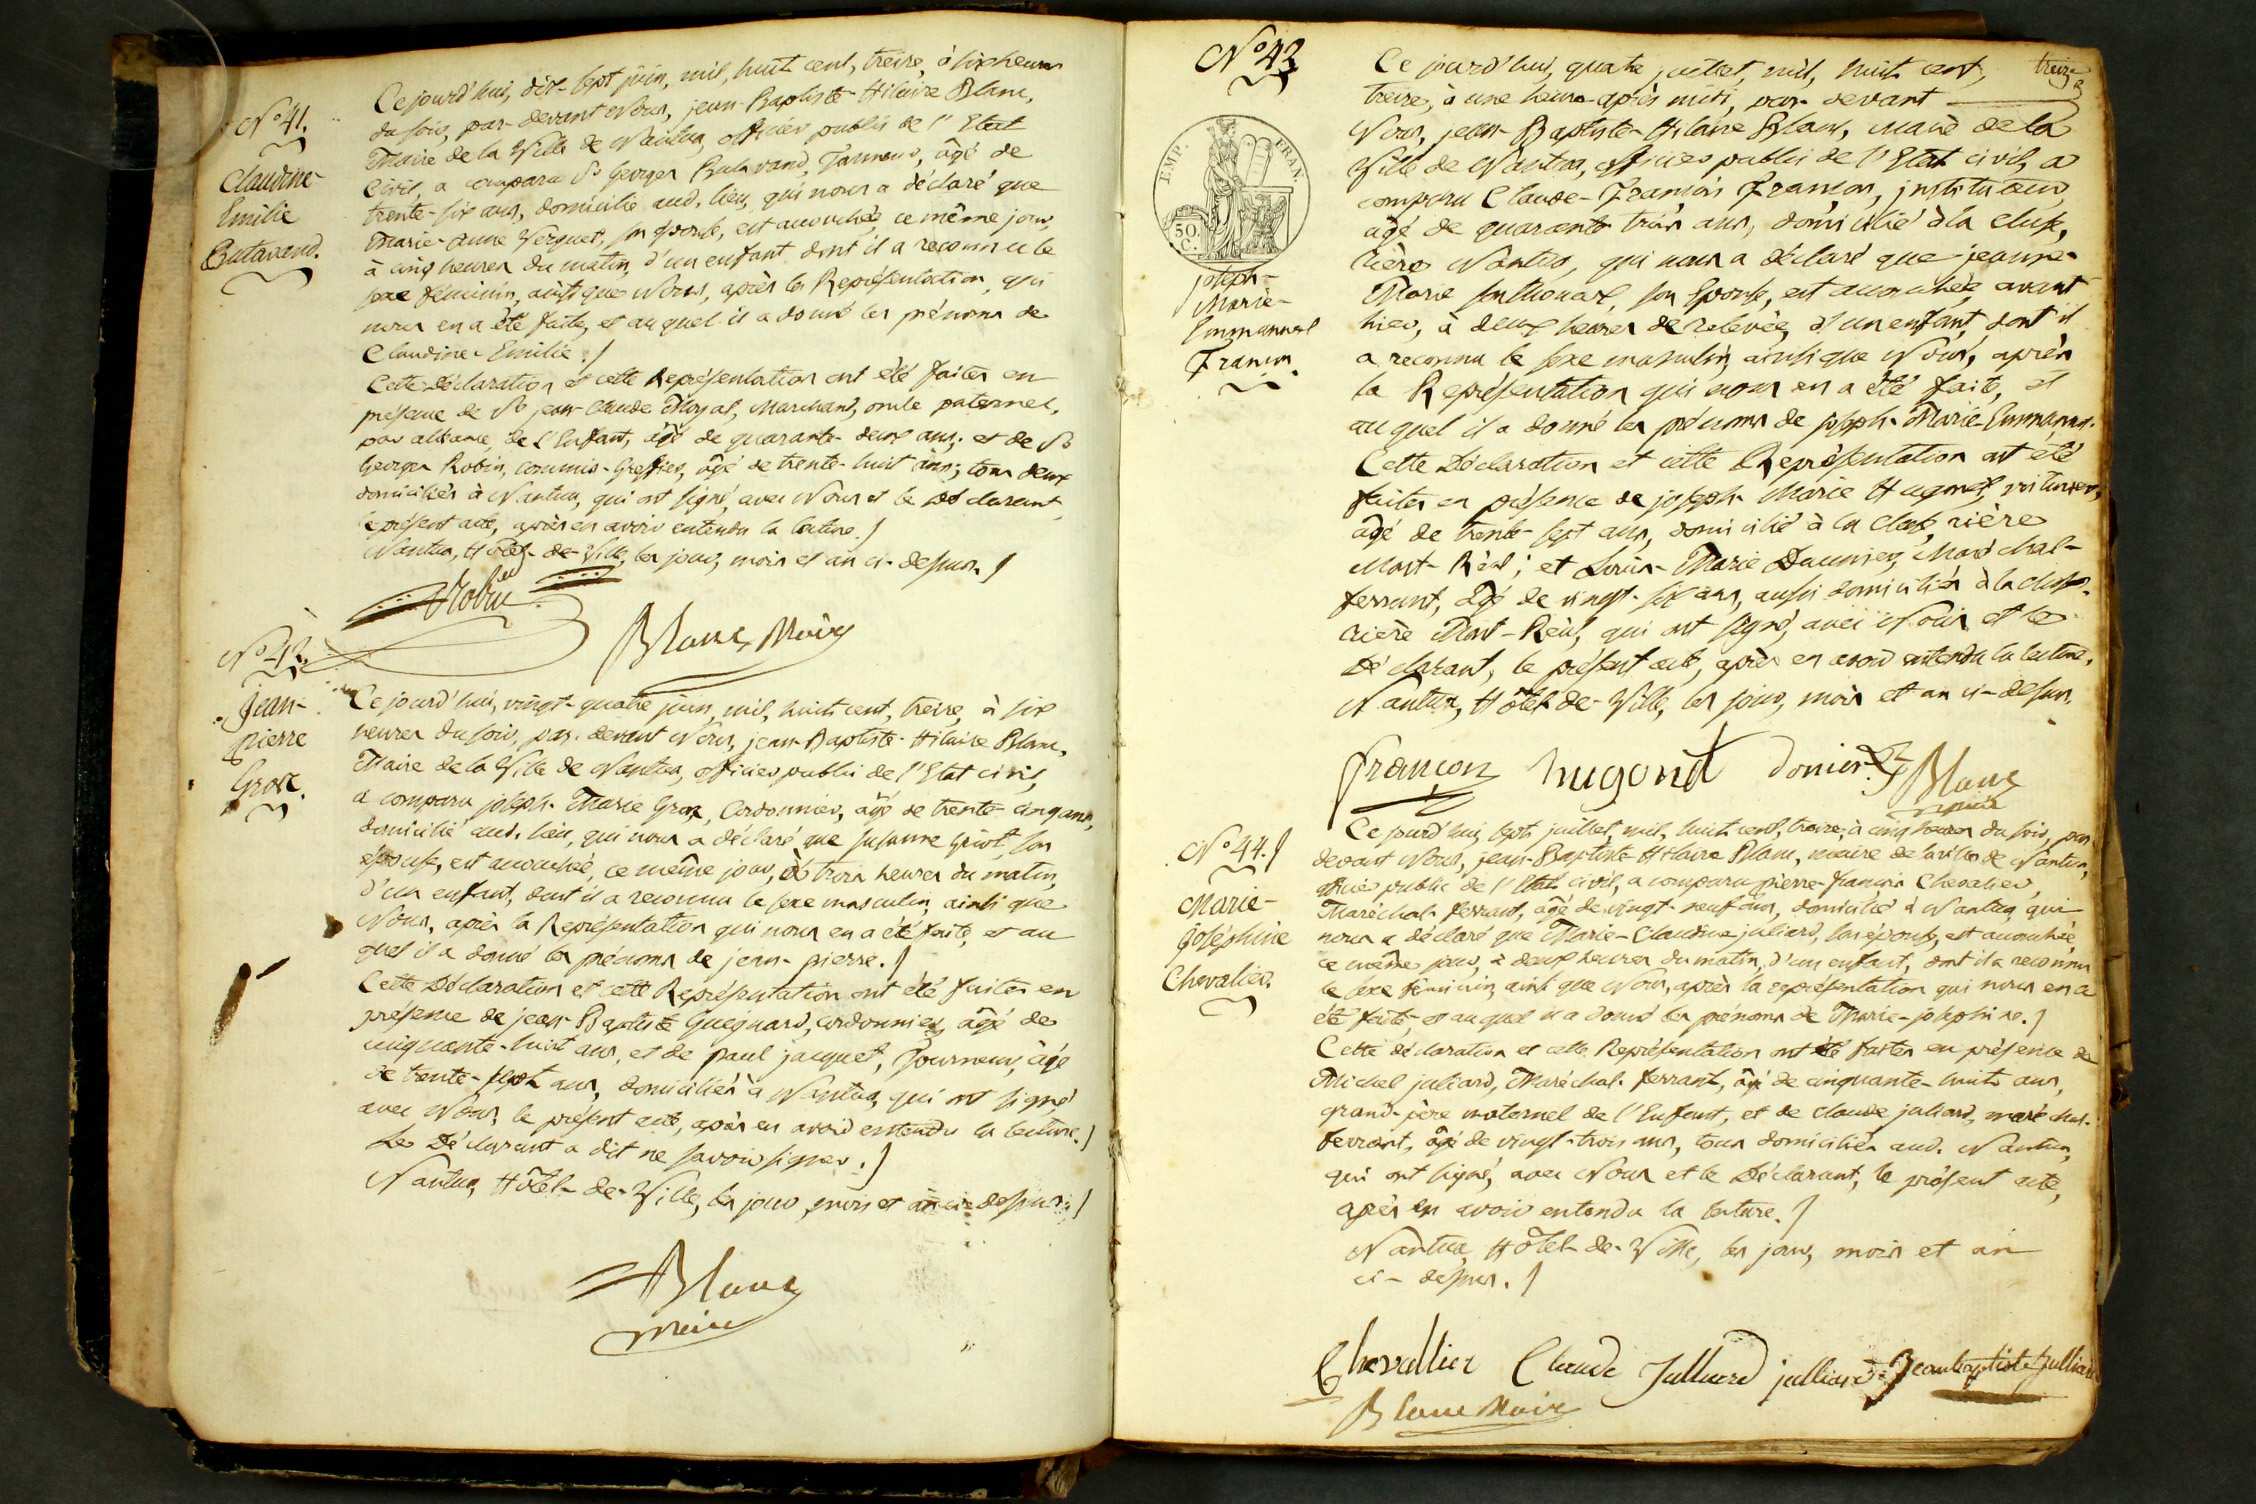 N.° 41.
Claudine-
Emilie
Butavand.
Ce jourd'hui, dix-sept juin, mil, huit cent, treize, à six heures
du soir, par-devant Nous, jean-Baptiste-Hilaire Blanc,
Maire de la Ville de Nantua, officier public de l'Etat
Civil, a comparu Sr. Georges Butavand, Tanneur, âgé de
trente-six ans, domicilié aud. lieu, qui nous a déclaré que
Marie-anne Verguet, son épouse, est accouchée, ce même jour,
à cinq heures du matin, d'un enfant dont il a reconnu le
sexe féminin, ainsi que Nous, après la Représentation, qui
nous en a été faite, et auquel il a donné les prénoms de
Claudine-Emilie./
Cette Déclaration et cette Représentation ont été faites en
présence de Sr. jean-Claude Moyat, Marchand, oncle paternel,
par alliance, de l'Enfant, âgé de quarante-deux ans; et de Sr.
Georges Robin, commis-Greffier, âgé de trente-huit ans; tous deux
domiciliés à Nantua, qui ont signé, avec Nous et le Déclarant,
le présent acte, après en avoir entendu la lecture./
Nantua, Hôtel-de-Ville, les jour, mois et an ci-dessus./
Robin
Blanc Maire
N.° 42.
Jean-
pierre
Groz.
Ce jourd'hui, vingt-quatre juin, mil, huit cent, treize, à six
heures du soir, par-devant Nous, jean-Baptiste-Hilaire Blanc,
Maire de la Ville de Nantua, officier public de l'Etat civil,
a comparu joseph-Marie Groz, Cordonnier, âgé de trente-cinq ans,
domicilié aud. lieu, qui nous a déclaré que Susanne son
épouse, est accouchée, ce même jour, à trois heures du matin,
d'un enfant, dont il a reconnu le sexe masculin, ainsi que
Nous, après la Représentation qui nous en a été faite, et au
quel il a donné les prénoms de jean-pierre./
Cette Déclaration et cette Représentation ont été faites en
présence de jean-Baptiste Guegnard, cordonnier, âgé de
cinquante-huit ans, et de paul jacquet, Tourneur, âgé
de trente-sept ans, domiciliés à Nantua, qui ont signé
avec Nous, le présent acte, après en avoir entendu la lecture./
Le Déclarant a dit ne savoir signer./
Nantua, Hôtel-de-Ville, les jour, mois et an ci-dessus./
Blanc
maire
treize
N.° 43
EMP. FRAN.
50 C.
joseph-
Marie-
Emmanuel
Françon.
Ce jourd'hui, quatre juillet, mil, huit cent,
treize, à une heure après midi, par-devant
Nous, jean-Baptiste-Hilaire Blanc, Maire de la
Ville de Nantua, officier public de l'Etat civil, a
comparu Claude-François Françon, instituteur,
âgé de quarante trois ans, domicilié à la cluse,
rière Nantua, qui nous a déclaré que jeanne-
Marie son Epouse, est accouchée, avant
hier, à deux heures de relevée, d'un enfant, dont il
a reconnu le sexe masculin, ainsi que Nous, après
la Représentation qui nous en a été faite, et
auquel il a donné les prénoms de joseph-Marie-Emmanuel.
Cette Déclaration et cette Représentation ont été
faites en présence de joseph-Marie Hugonet, voiturier,
âgé de trente-sept ans, domicilié à la cluse, rière
Mont-Réal; et Louis-Marie Daunier, Maréchal-
ferrant, âgé de vingt-six ans, aussi domiciliés à la cluse-
rière Mont-Réal, qui ont signé, avec Nous et le
Déclarant, le présent acte, après en avoir entendu la lecture.
Nantua, Hôtel-de-Ville, les jour, mois et an ci-dessus.
françon hugonet donier Blanc
maire
N.° 44./
Marie-
Joséphine
Chevalier.
Ce jourd'hui, sept juillet, mil, huit cent, treize, à cinq heures du soir, par
devant Nous, jean-Baptiste-Hilaire Blanc, maire de la ville de Nantua,
officier public de l'Etat civil, a comparu pierre-françois Chevalier,
Maréchal-ferrant, âgé de vingt-neuf ans, domicilié à Nantua, qui
nous a déclaré que Marie-Claudine juliard, son épouse, est accouchée,
ce même jour, à deux heures du matin, d'un enfant, dont il a reconnu
le sexe féminin, ainsi que Nous, après la représentation qui nous en a
été faite, et auquel il a donné les prénoms de Marie-joséphine./
Cette déclaration et cette Représentation ont été faites en présence de
Michel juliard, Maréchal-ferrant, âgé de cinquante-huit ans,
grand-père maternel de l'Enfant, et de claude juliard, maréchal-
ferrant, âgé de vingt-trois ans, tous domiciliés aud. Nantua,
qui ont signé, avec Nous et le Déclarant, le présent acte,
après en avoir entendu la lecture./
Nantua, Hôtel-de-Ville, les jour, mois et an
ci-dessus./
Chevallier Claude Julliard julliard Jean baptiste Julliard
Blanc Maire